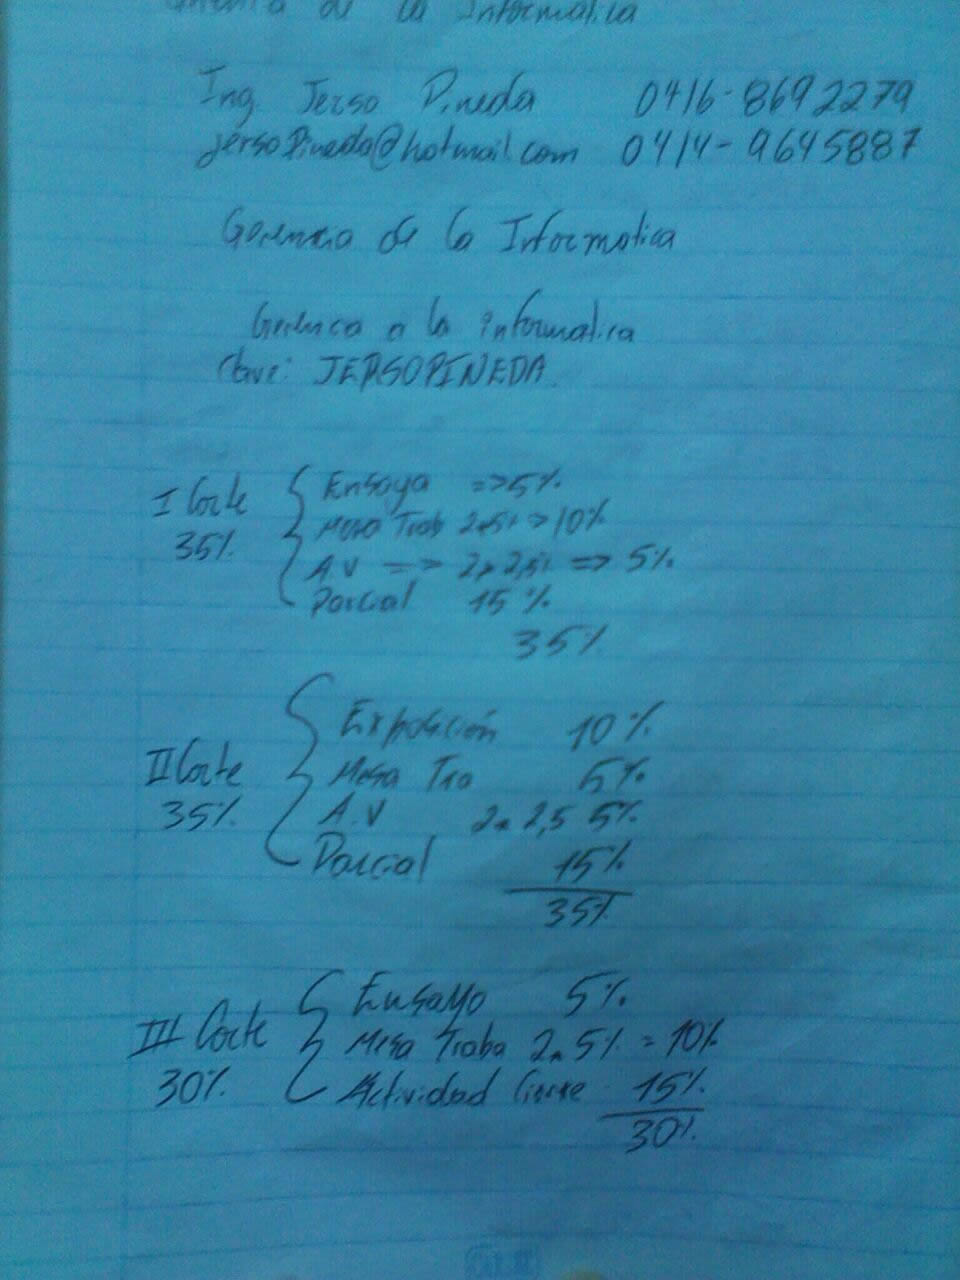 de la Informatica
Ing. Jerso Pineda 0416-8692279
jersoPineda@hotmail.com 0414-9645887
Gerencia de la Informatica
Gerenca a la informatica
Clave: JERSOPINEDA
I Corte
35%
Ensaya => 5%
Mesa Trab 2x5% => 10%
A.V => 2x2,5% => 5%
Parcial 15%
35%
II Corte
35%
Exposición 10%
Mesa Tra 5%
A.V 2x2,5 5%
Parcial 15%
35%
III Corte
30%
Ensayo 5%
Mesa Traba 2x5% = 10%
Actividad Cierre 15%
30%